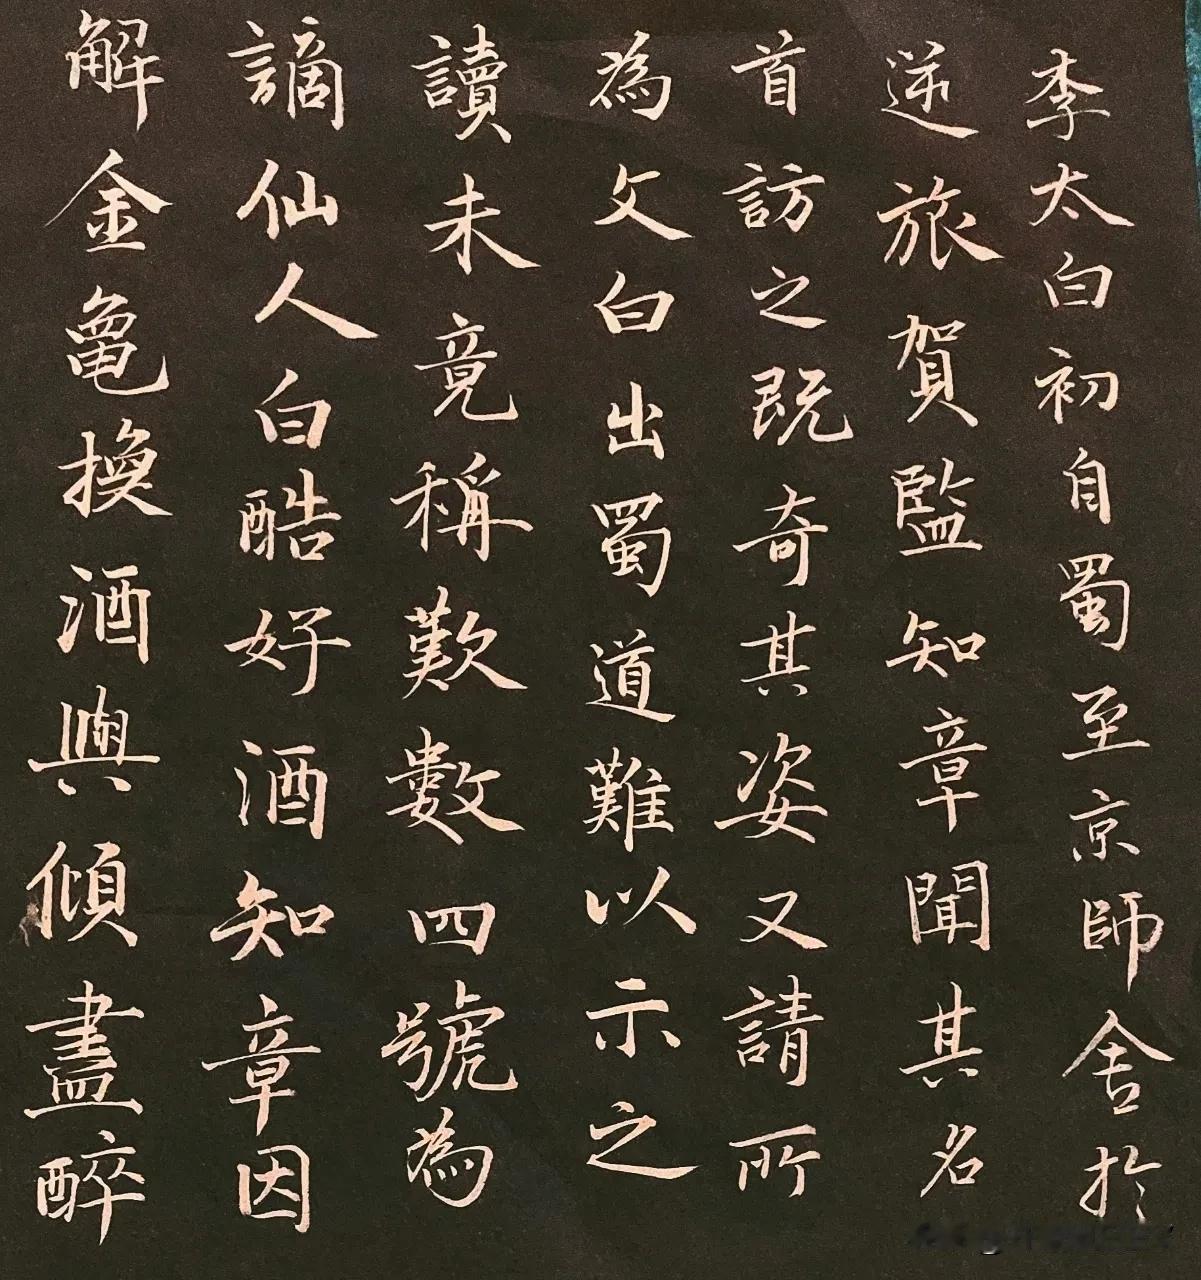 李太白初自蜀至京師舍於
逆旅賀監知章聞其名
首訪之既奇其姿又請所
為文白出蜀道難以示之
讀未竟稱歎數四號為
謫仙人白酷好酒知章因
解金龜換酒與傾盡醉